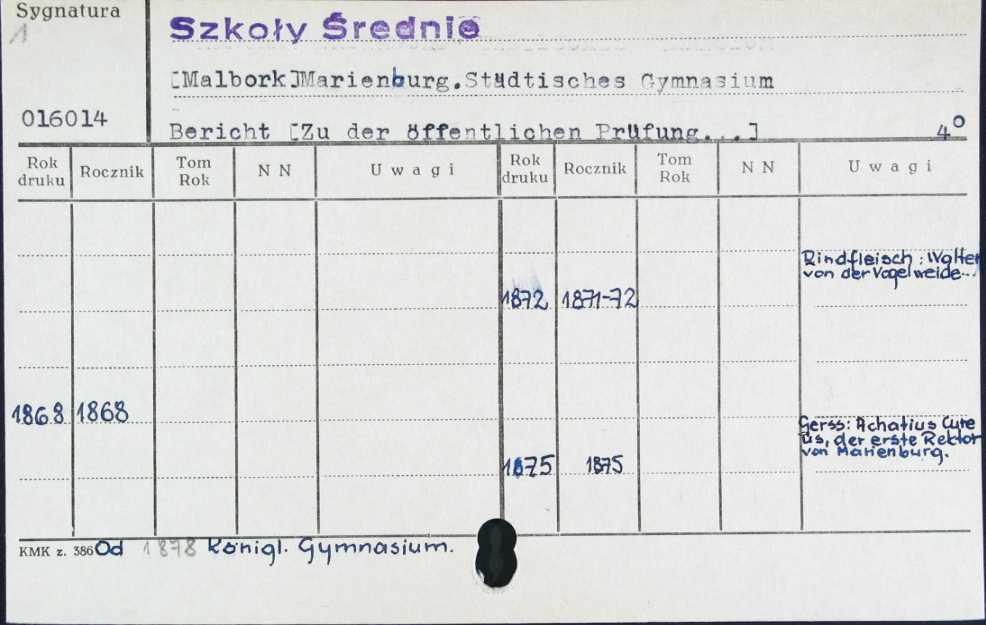 Sygnatura
1
Szkoły Średnie
[Malbork]Marienburg.Städtisches Gymnasium
016014
Bericht [Zu der öffentlichen Prüfung...] 4°
Rok druku Rocznik Tom Rok N N Uwagi Rok druku Rocznik Tom Rok N N Uwagi
Rindfleisch : Walter
von der Vogelweide...
1872 1871-72
1868 1868
Gerss: Achatius Cure
us, der erste Rektor
von Marienburg.
1875 1875
KMK z. 386 Od 1878 Königl. Gymnasium.